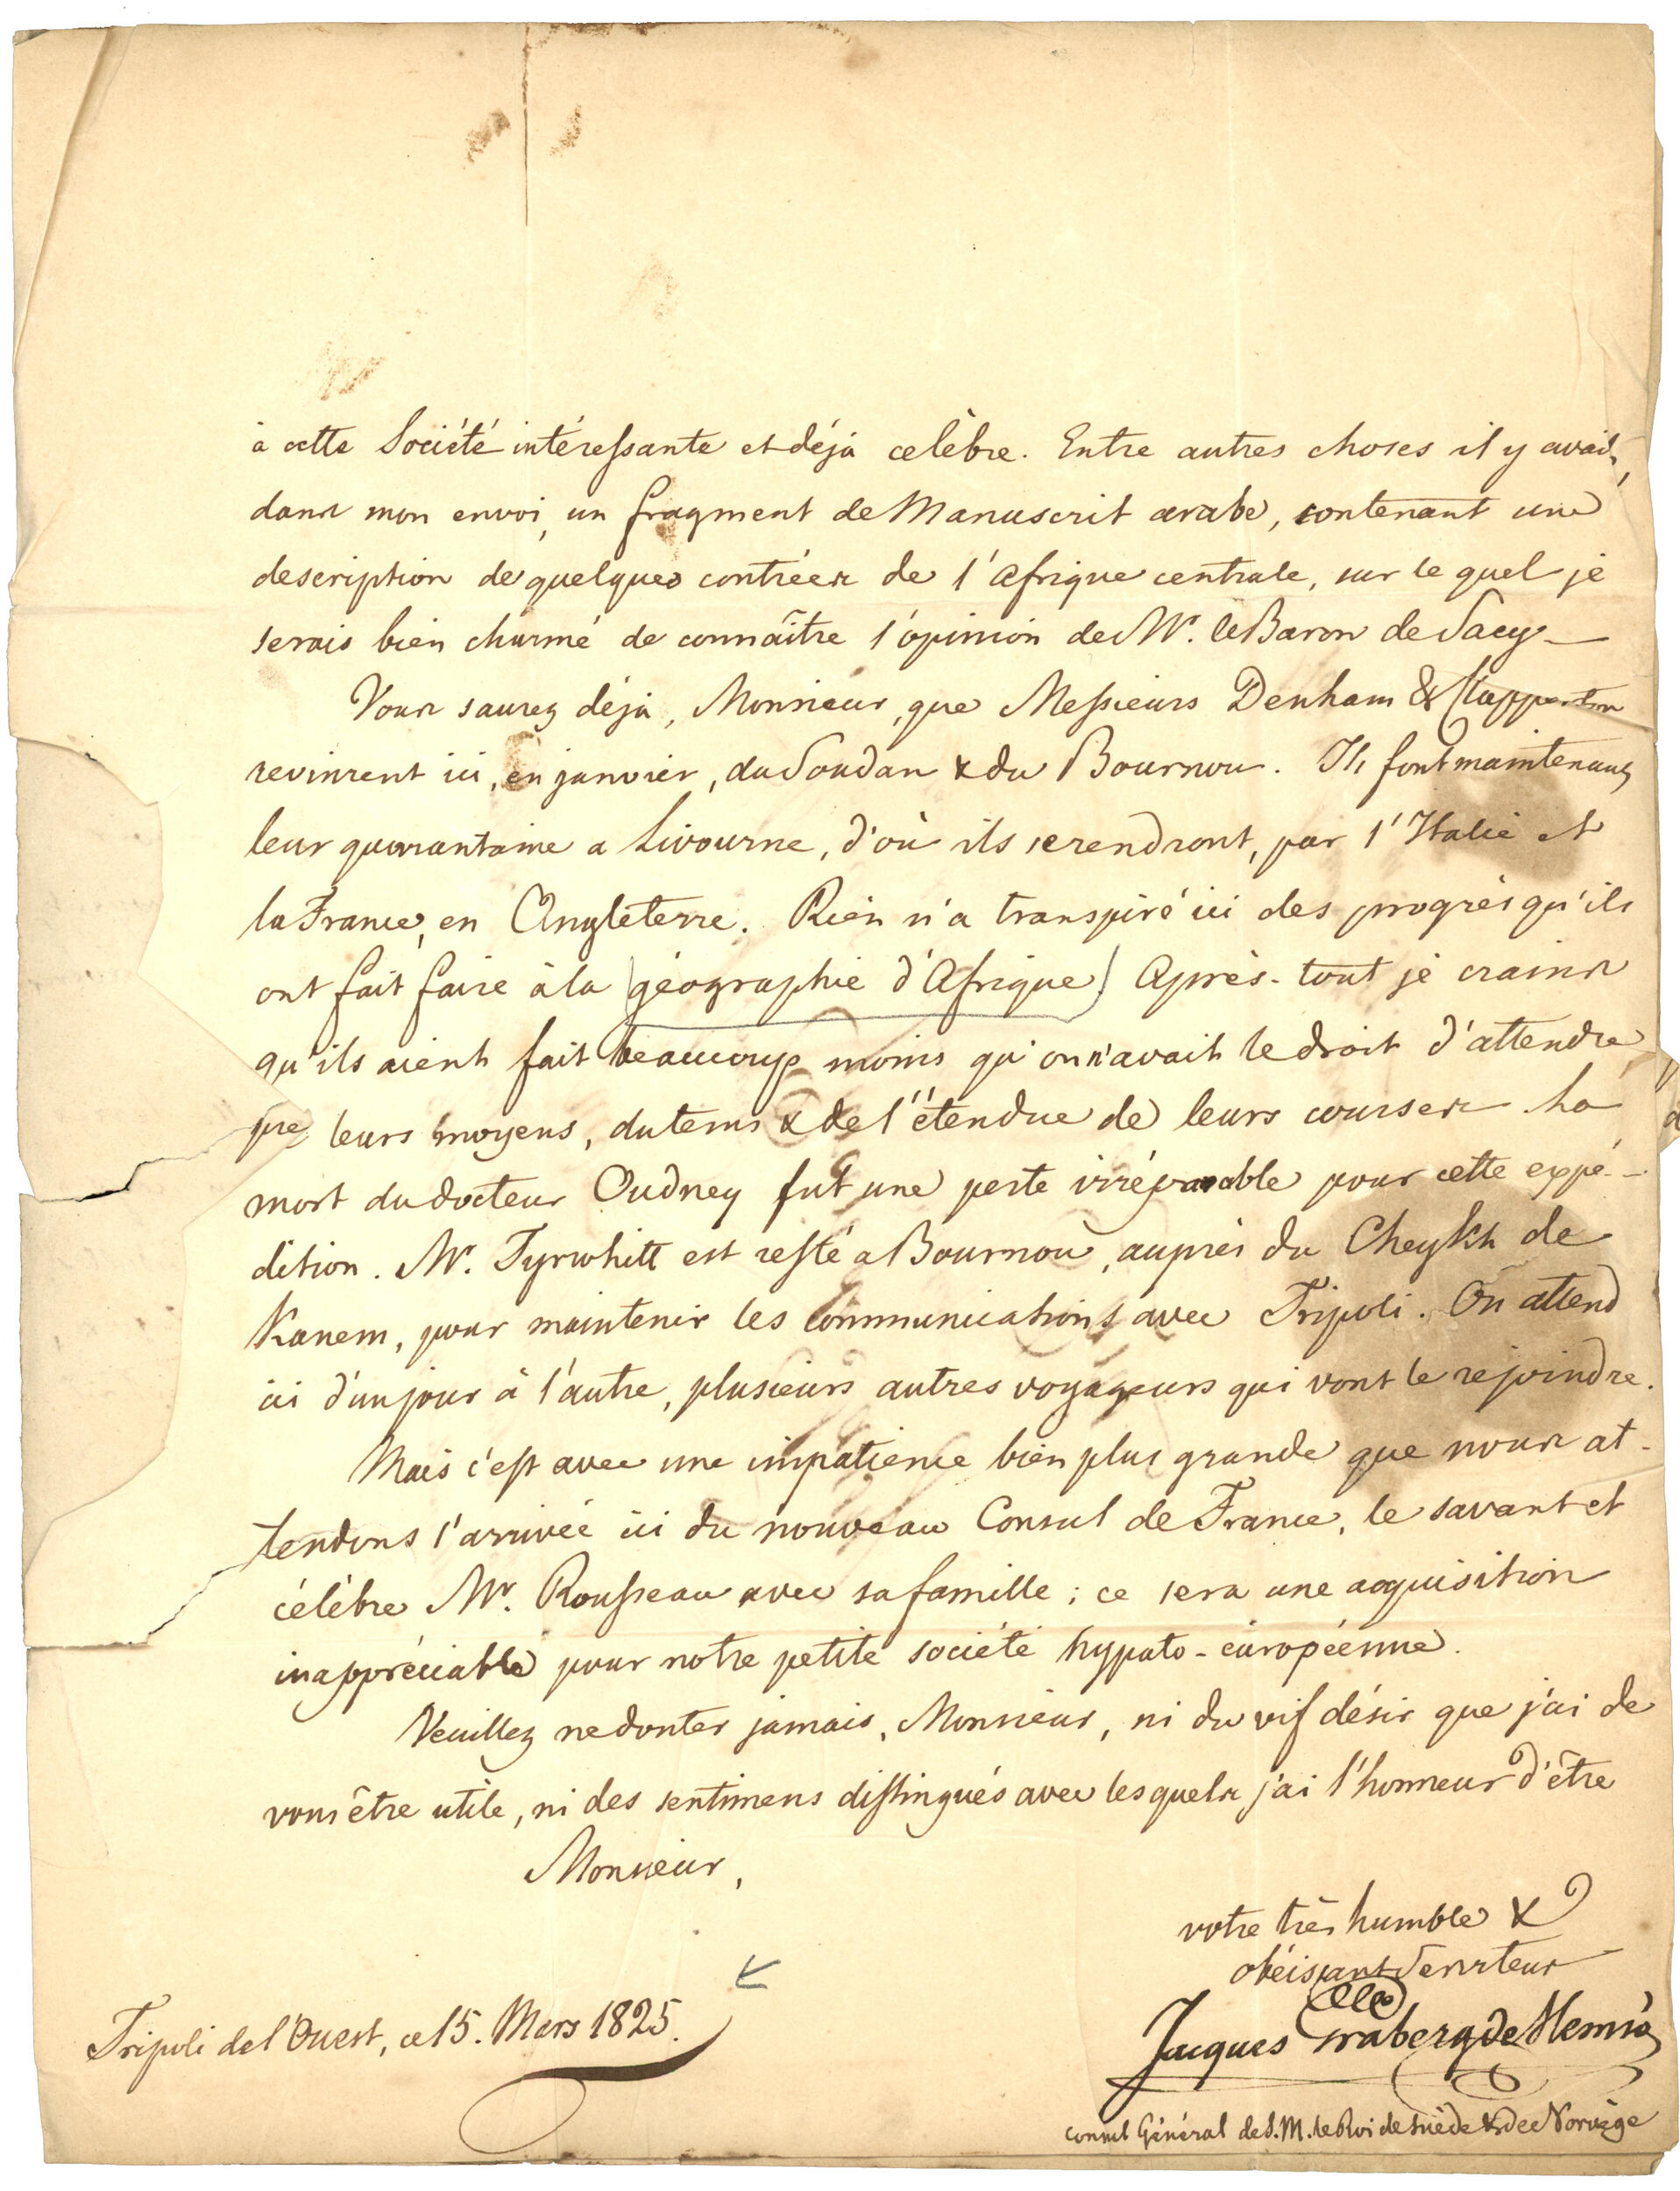 à cette Société intéressante et déjà celèbre. Entre autres choses il y avait,
dans mon envoi, un fragment de Manuscrit arabe, contenant une
description de quelques contrées de l'Afrique centrale, sur le quel je
serais bien charmé de connaître l'opinion de Mr. le Baron de Sacy
Vous saurez déjà, Monsieur, que Messieurs Denham & Clapperton
revinrent ici, en janvier, du Soudan & du Bournou. Ils font maintenant
leur quarantaine a Livourne, d'où ils se rendront, par l'Italie et
la France, en Angleterre. Rien n'a transpiré ici des progrès qu'ils
ont fait faire à la géographie d'Afrique. Après-tout je crains
qu'ils aient fait beaucoup moins qu'on n'avait le droit d'attendre
leurs moyens, du tems & de l'étendue de leurs courses. La
mort du docteur Oudney fut une perte irréparable pour cette expé-
dition. Mr. Tyrwhitt est resté a Bournou, auprès du Cheykh de
Kanem, pour maintenir les communications avec Tripoli. On attend
ici d'un jour à l'autre, plusieurs autres voyageurs qui vont le rejoindre.
Mais c'est avec une impatience bien plus grande que nous at-
tendons l'arrivée ici du nouveau Consul de France, le savant et
célèbre Mr. Rousseau avec sa famille; ce sera une acquisition
inappréciable pour notre petite société hypato-européenne.
Veuillez ne douter jamais, Monsieur, ni du vif désir que j'ai de
vous être utile, ni des sentimens distingués avec lesquels j'ai l'honneur d'être
Monsieur,
votre très humble &
obéissant Serviteur
Jacques Graberg de Hemsö
Consul Général de S. M. le Roi de Suède & de Norvège
Tripoli de l'Ouest, ce 15. Mars 1825.